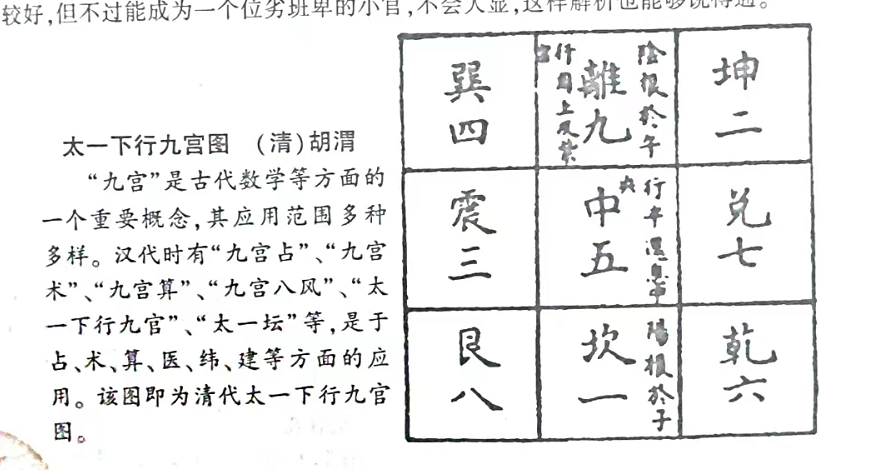 较好,但不过能成为一个位劣班卑的小官,不会大显,这样解析也能够说得通。
太一下行九宫图 (清)胡渭
“九宫”是古代数学等方面的
一个重要概念,其应用范围多种
多样。汉代时有“九宫占”、“九宫
术”、“九宫算”、“九宫八风”、“太
一下行九官”、“太一坛”等,是于
占、术、算、医、纬、建等方面的应
用。该图即为清代太一下行九宫
图。
巽四
離九
陰根於午
行周上反紫宮
坤二
震三
中五
行半還息中央
兑七
艮八
坎一
陽根於子
乾六